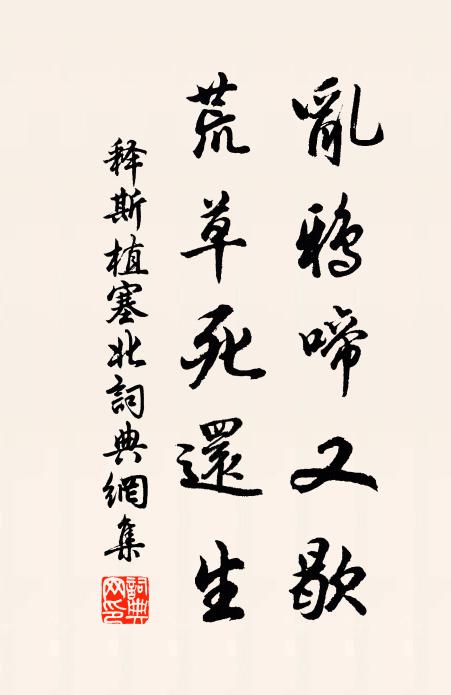 亂鴉啼又歇
荒草死還生
释斯植塞北詞典網集
詞典网印